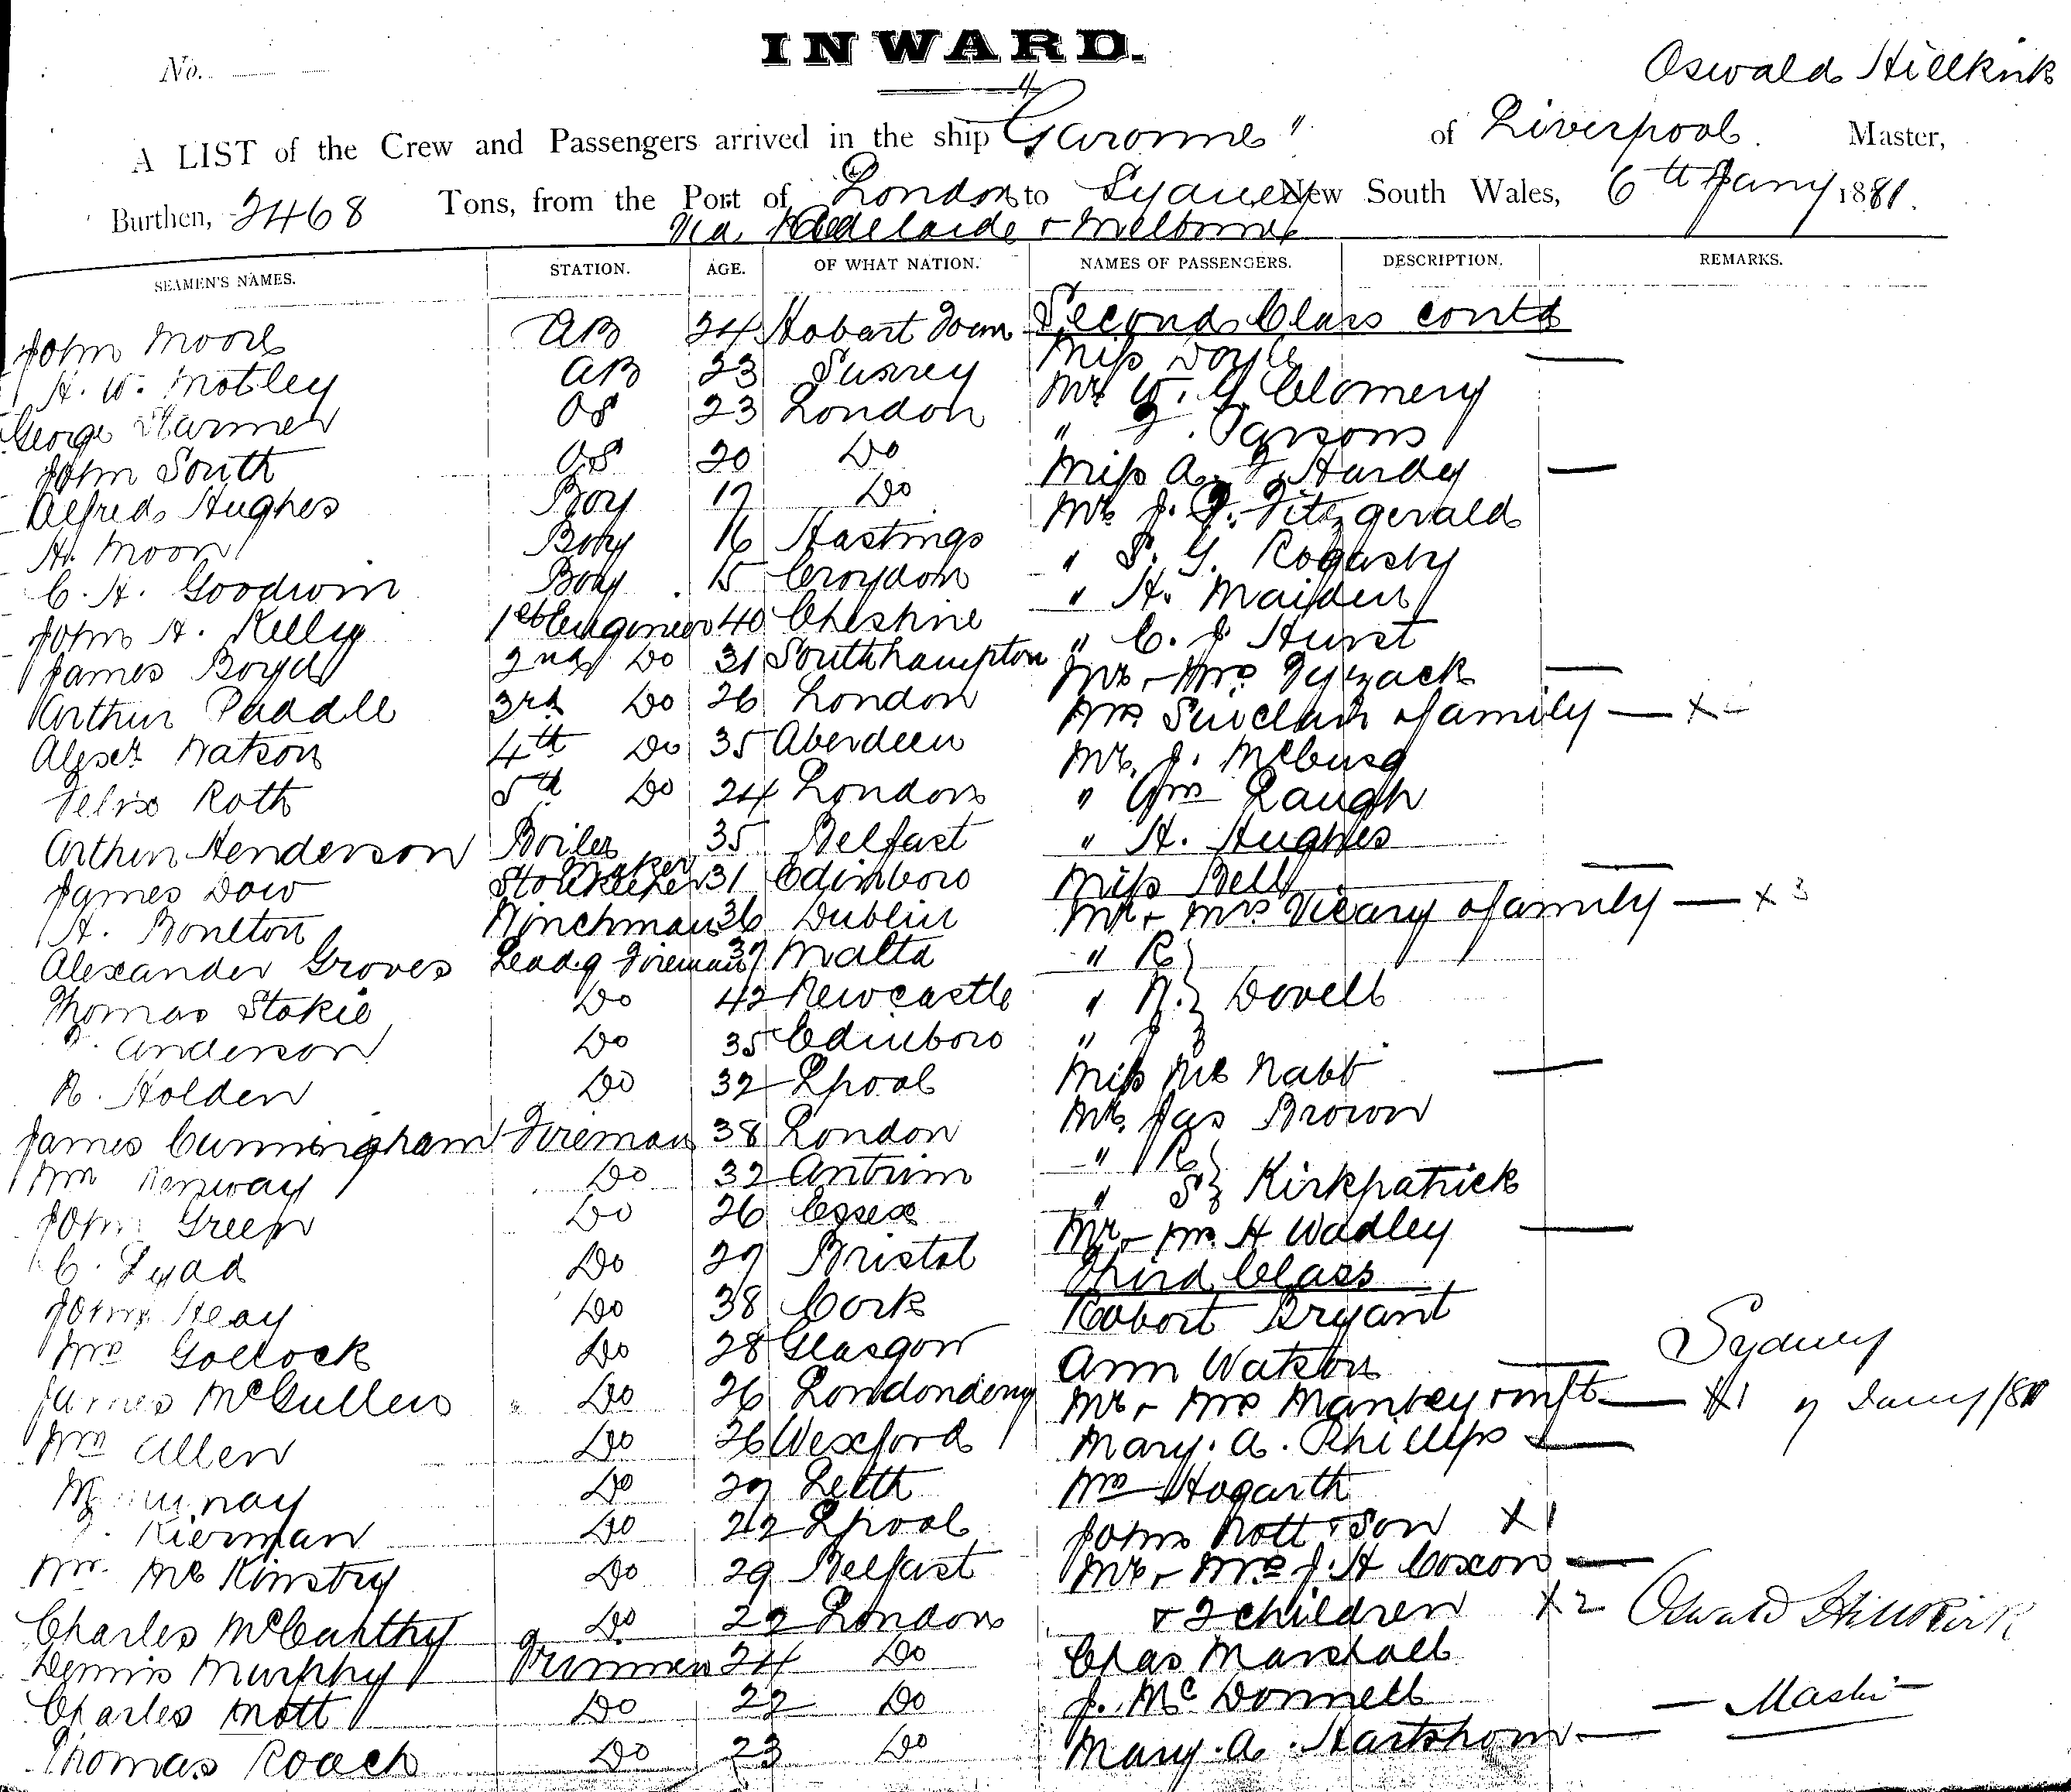 INWARD.
No.
Oswald Hillkirk
A LIST of the Crew and Passengers arrived in the ship "Garonne" of Liverpool. Master,
Burthen, 2468 Tons, from the Port of London to Sydney New South Wales, 6th Jany 1881.
Via Adelaide & Melbourne
SEAMEN'S NAMES. STATION. AGE. OF WHAT NATION. NAMES OF PASSENGERS. DESCRIPTION. REMARKS.
Second Class contd
John Moore AB 24 Hobart Town Miss Doyle —
H. W. Motley AB 23 Surrey Mr W. G. Clomery
George Warmer OS 23 London " Parsons
John South OS 20 Do Miss A. Hardy —
Alfred Hughes Boy 17 Do Mr J. F. Fitzgerald
H. Moon Boy 16 Hastings " S. G. Rogasky
C. H. Goodwin Boy 15 Croydon " H. Maiden
John H. Kelly 1st Engineer 40 Cheshire " C. J Hurst
James Boyd 2nd Do 31 Southhampton Mr & Mrs Tyzack —
Arthur Paddle 3rd Do 26 London Mrs Sinclair & family — X
Alexr Watson 4th Do 35 Aberdeen Mr. J.
Felix Roth 5th Do 24 London " Wm Laugh
Arthur Henderson Boiler Maker 35 Belfast " H. Hughes
James Dow Storekeeper 31 Edinboro Miss Bell —
H. Boulton Winchman 36 Dublin Mr & Mrs Vicary & family — x 3
Alexander Groves Leadg Fireman 37 Malta " R }
Thomas Stokie Do 42 Newcastle " N. } Dovell
Anderson Do 35 Edinboro " J }
R. Holden Do 32 Lpool Miss Mc Nabb —
James Cunningham Fireman 38 London Mr. Jas Brown
Wm Kenway Do 32 Antrim " R }
John Green Do 26 Essex " S } Kirkpatrick
C. Lyad Do 27 Bristol Mr & Mrs H Wadley —
Third Class
John Heay Do 38 Cork Robert Bryant
Wm Gollock Do 28 Glasgow Ann Watson —
Sydney
James McCullen Do 26 Londonderry Mr & Mrs Mankey & inft — X1 7 Jany /81
Wm Allen Do 26 Wexford Mary. A. Phillips —
Murray Do 27 Leith Wm Hogarth
Kiernan Do 22 Lpool John Nott & Son X1
Wm. Mc Kinstry Do 29 Belfast Mr & Mrs J. H Coxon —
Charles McCarthy Do 22 London & 2 children X2 Oswald Hillkirk
Dennis Murphy Trimmer 24 Do Chas Marshall
Charles Mott Do 22 Do J. Mc Donnell — Master —
Thomas Roach Do 23 Do Mary. A. Hartshorn —